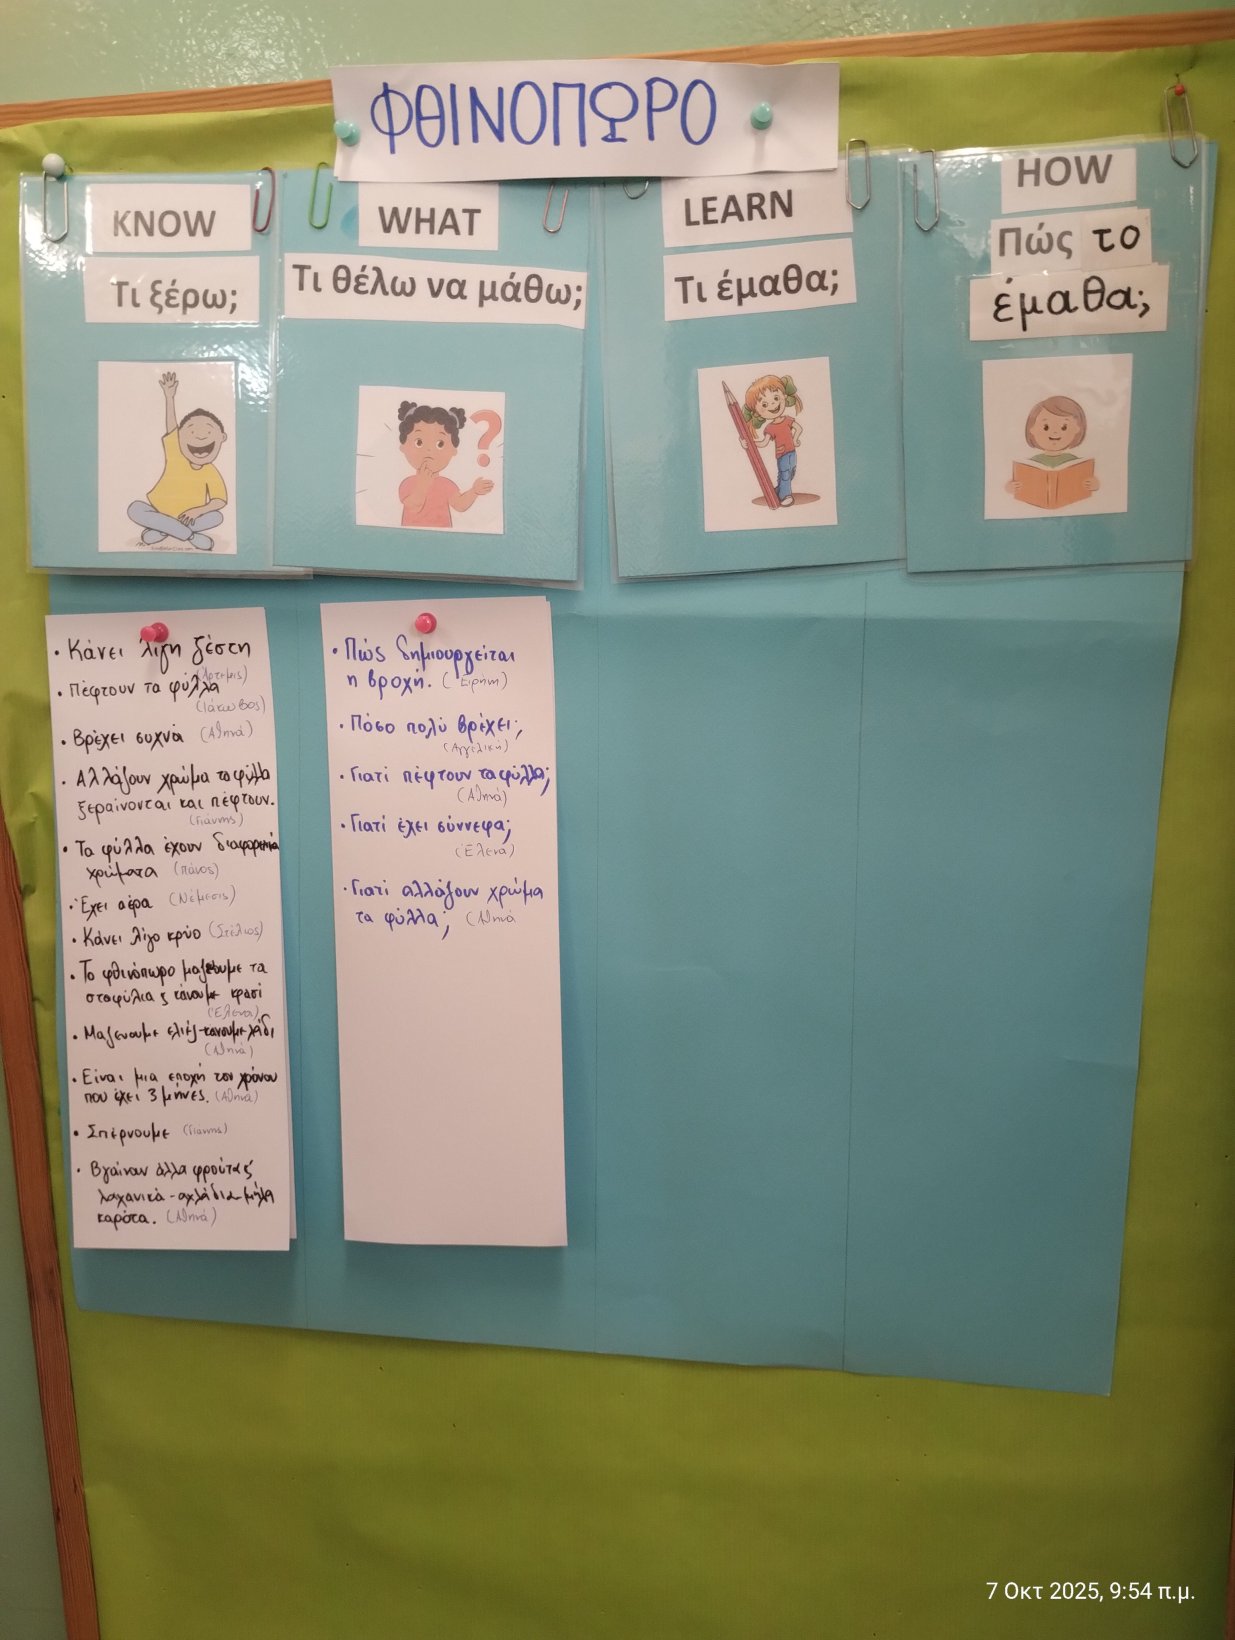 ΦΘΙΝΟΠΩΡΟ
KNOW
Τι ξέρω;
WHAT
Τι θέλω να μάθω;
LEARN
Τι έμαθα;
HOW
Πώς το
έμαθα;
• Κάνει λίγη ζέστη
(Άρτεμις)
• Πέφτουν τα φύλλα
(Ιάκωβος)
• Βρέχει συχνά (Αθηνά)
• Αλλάζουν χρώμα τα φύλλα
ξεραίνονται και πέφτουν.
(Γιάννης)
• Τα φύλλα έχουν διαφορετικά
χρώματα (Πάνος)
• Έχει αέρα (Νέμεσις)
• Κάνει λίγο κρύο (Στέλιος)
• Το φθινόπωρο μαζεύουμε τα
σταφύλια ς κάνουμε κρασί
(Έλενα)
• Μαζεύουμε ελιές-κάνουμε λάδι
(Αθηνά)
• Είναι μια εποχή του χρόνου
που έχει 3 μήνες. (Αθηνά)
• Σπέρνουμε (Γιάννης)
• Βγαίνουν άλλα φρούτα ς
λαχανικά - αχλάδια-μήλα
καρότα. (Αθηνά)
• Πώς δημιουργείται
η βροχή. (Ειρήνη)
• Πόσο πολύ βρέχει;
(Αγγελική)
• Γιατί πέφτουν τα φύλλα;
(Αθηνά)
• Γιατί έχει σύννεφα;
(Έλενα)
• Γιατί αλλάζουν χρώμα
τα φύλλα; (Αθηνά
7 Οκτ 2025, 9:54 π.μ.